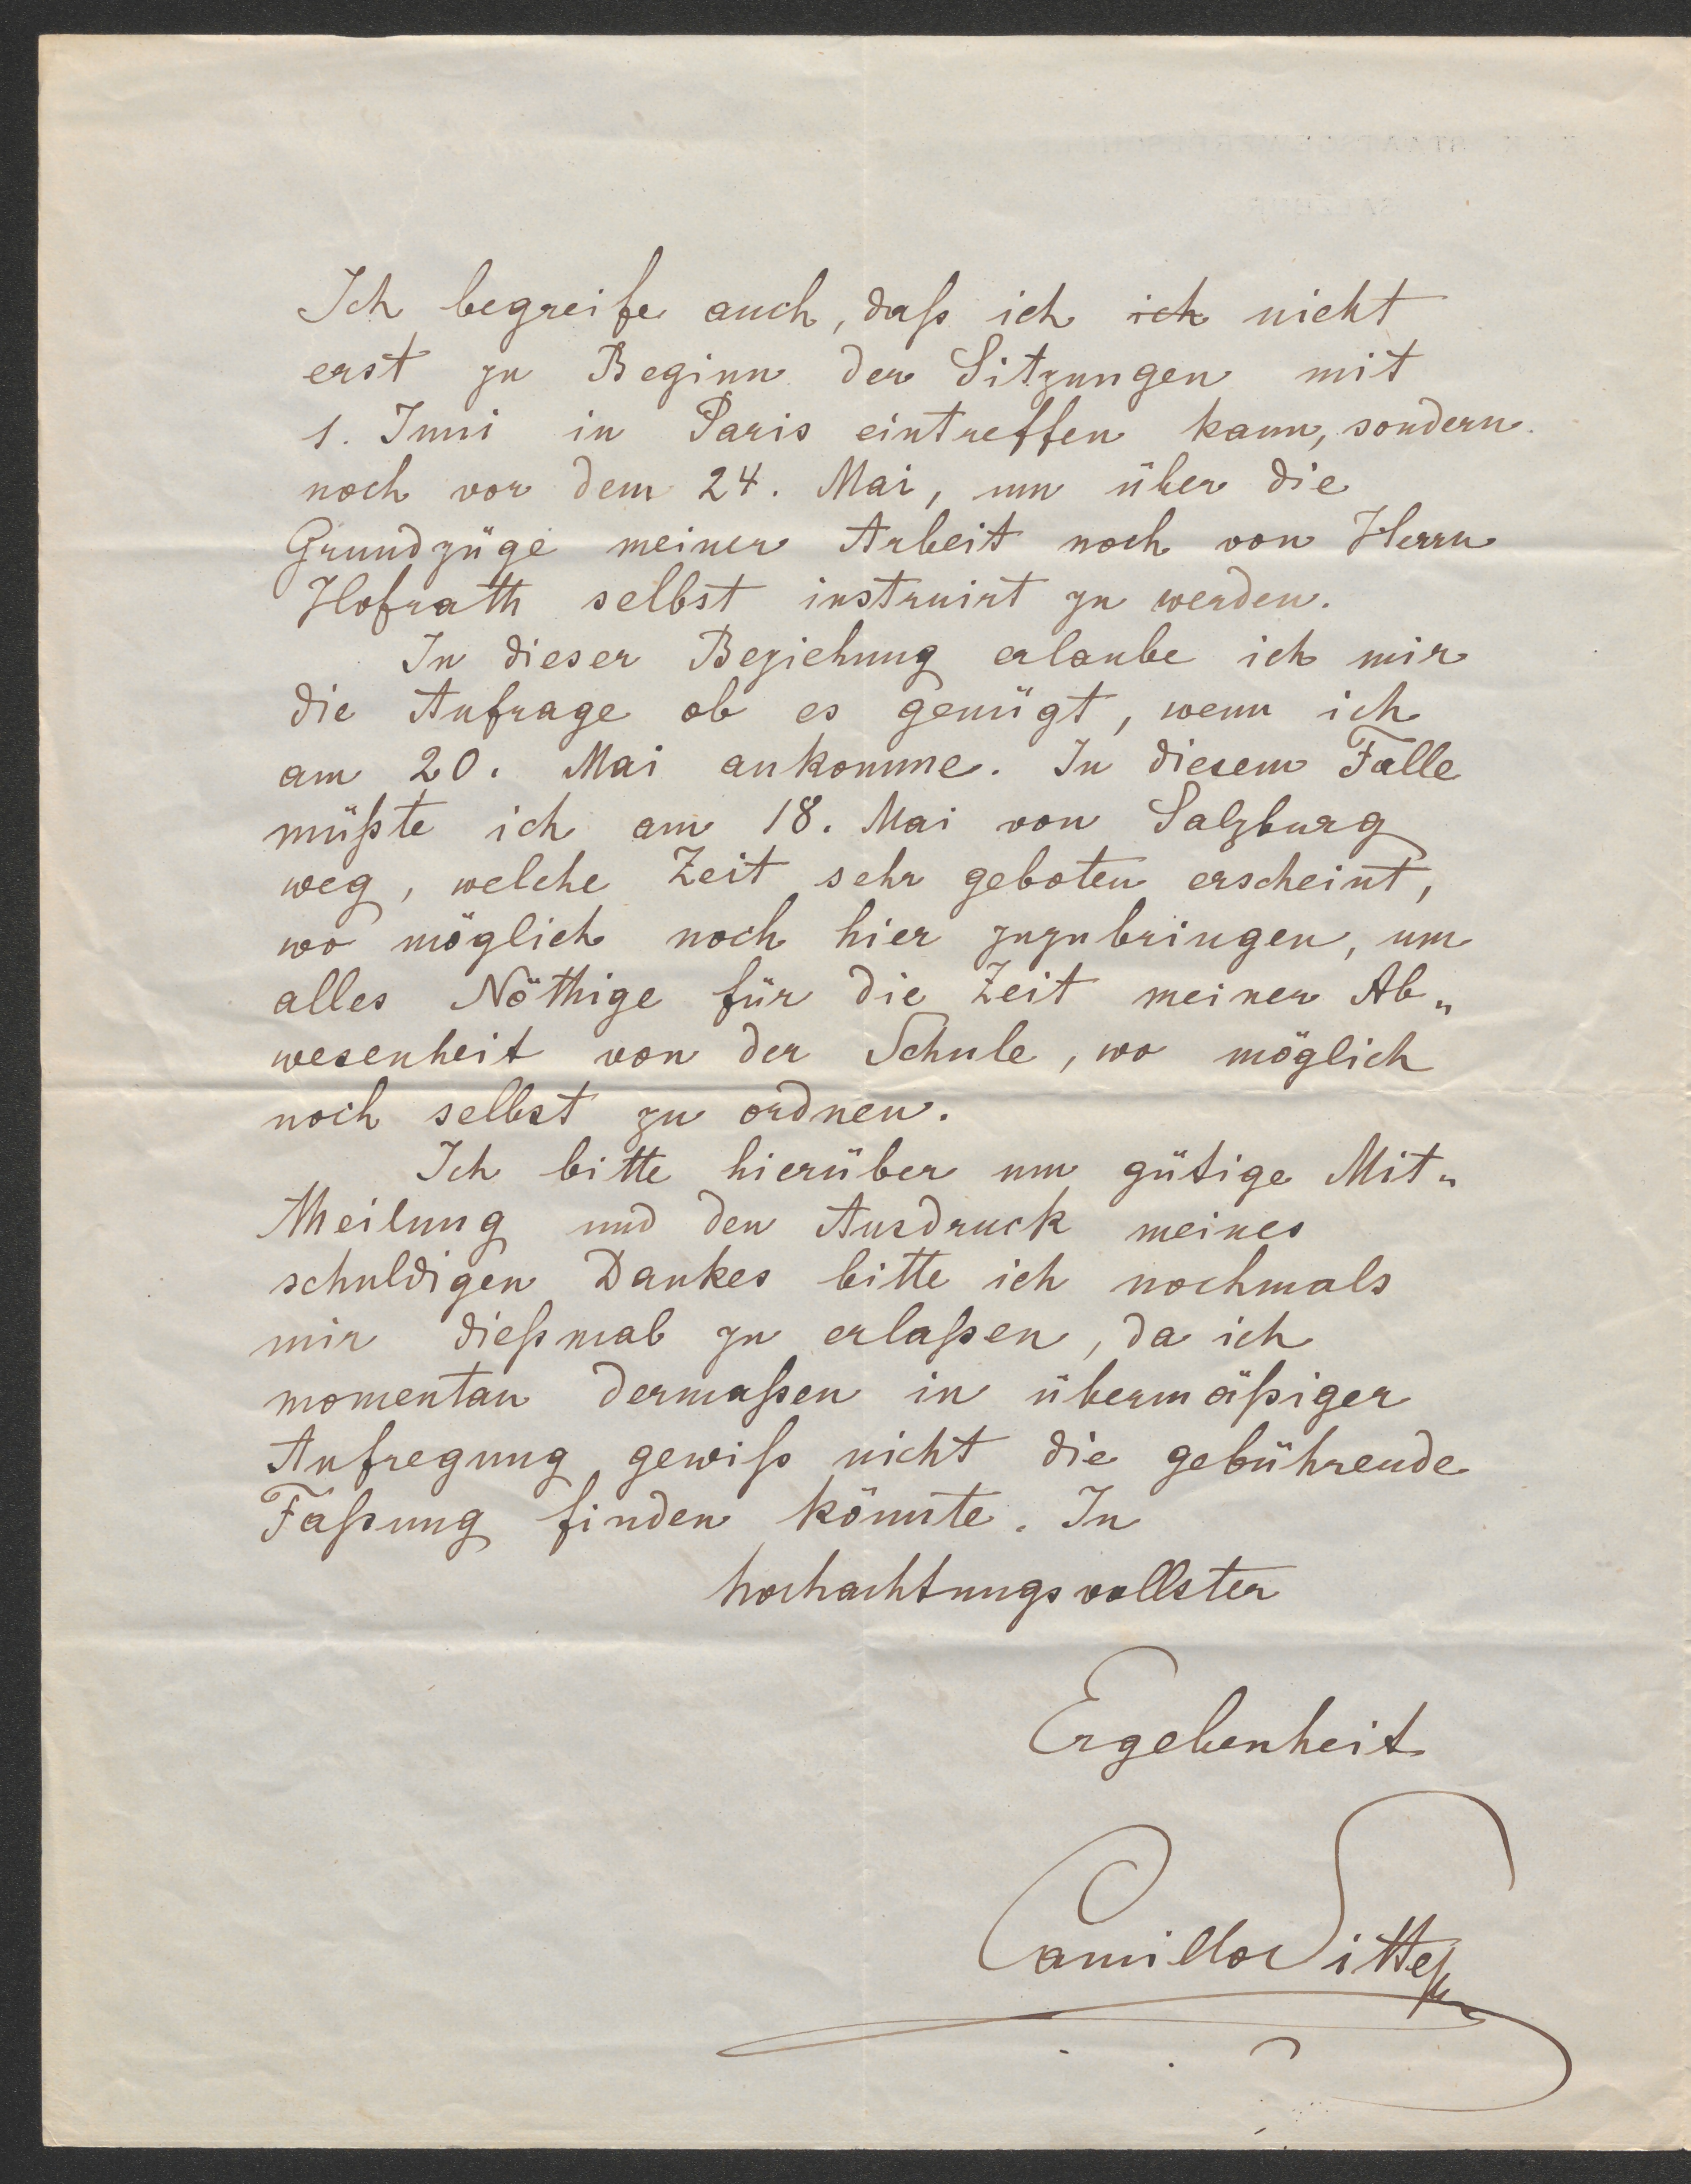 Ich begreife auch, daß ich ich nicht
erst zu Beginn der Sitzungen mit
1. Juni in Paris eintreffen kann, sondern
noch vor dem 24. Mai, um über die
Grundzüge meiner Arbeit noch von Herrn
Hofrath selbst instruirt zu werden.
In dieser Beziehung erlaube ich mir
die Anfrage ob es genügt, wenn ich
am 20. Mai ankomme. In diesem Falle
müßte ich am 18. Mai von Salzburg
weg, welche Zeit sehr geboten erscheint,
wo möglich noch hier zuzubringen, um
alles Nöthige für die Zeit meiner Ab„
wesenheit von der Schule, wo möglich
noch selbst zu ordnen.
Ich bitte hierüber um gütige Mit„
theilung und den Ausdruck meines
schuldigen Dankes bitte ich nochmals
mir dießmal zu erlaßen, da ich
momentan dermaßen in übermäßiger
Aufregung gewiß nicht die gebührende
Faßung finden könnte. In
hochachtungsvollster
Ergebenheit
Camillo Sitte